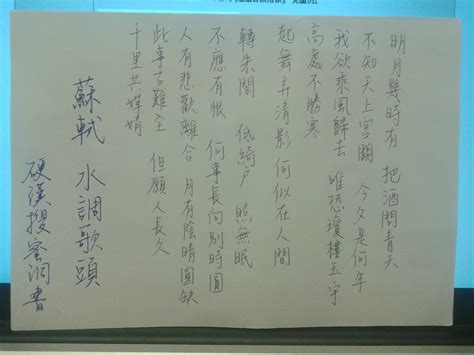 明月幾時有 把酒問青天
不知天上宮闕 今夕是何年
我欲乘風歸去 唯恐瓊樓玉宇
高處不勝寒
起舞弄清影 何似在人間
轉朱閣 低綺戶 照無眠
不應有恨 何事長向別時圓
人有悲歡離合 月有陰晴圓缺
此事古難全 但願人長久
千里共嬋娟
蘇軾 水調歌頭
硬漢搜蜜洞書